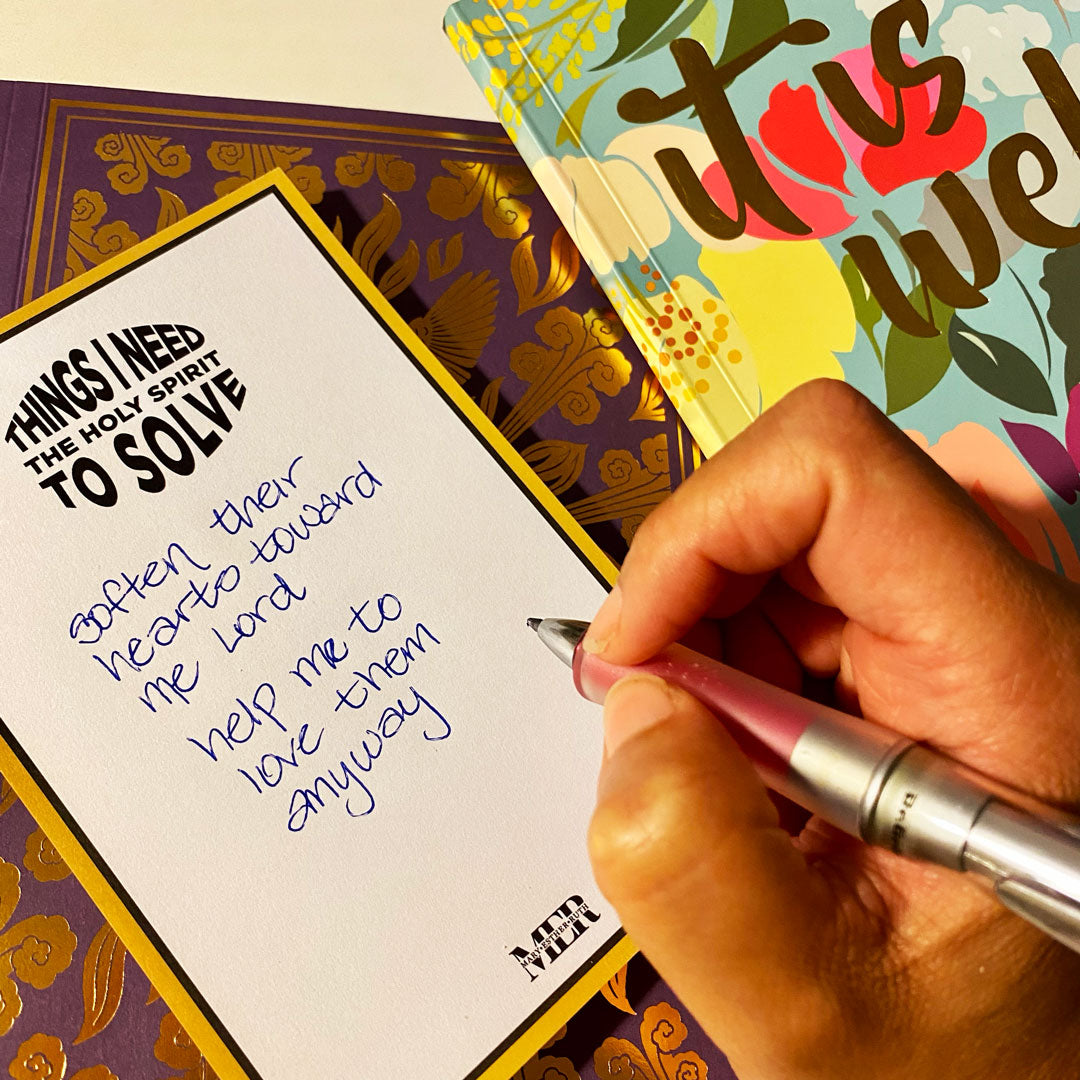 it is
wel
THINGS I NEED
THE HOLY SPIRIT
TO SOLVE
soften their
hearts toward
me Lord
help me to
love them
anyway
MER
MARY·ESTHER·RUTH